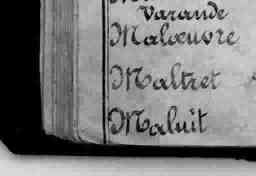 Varande
Malœuvre
Maltret
Maluit